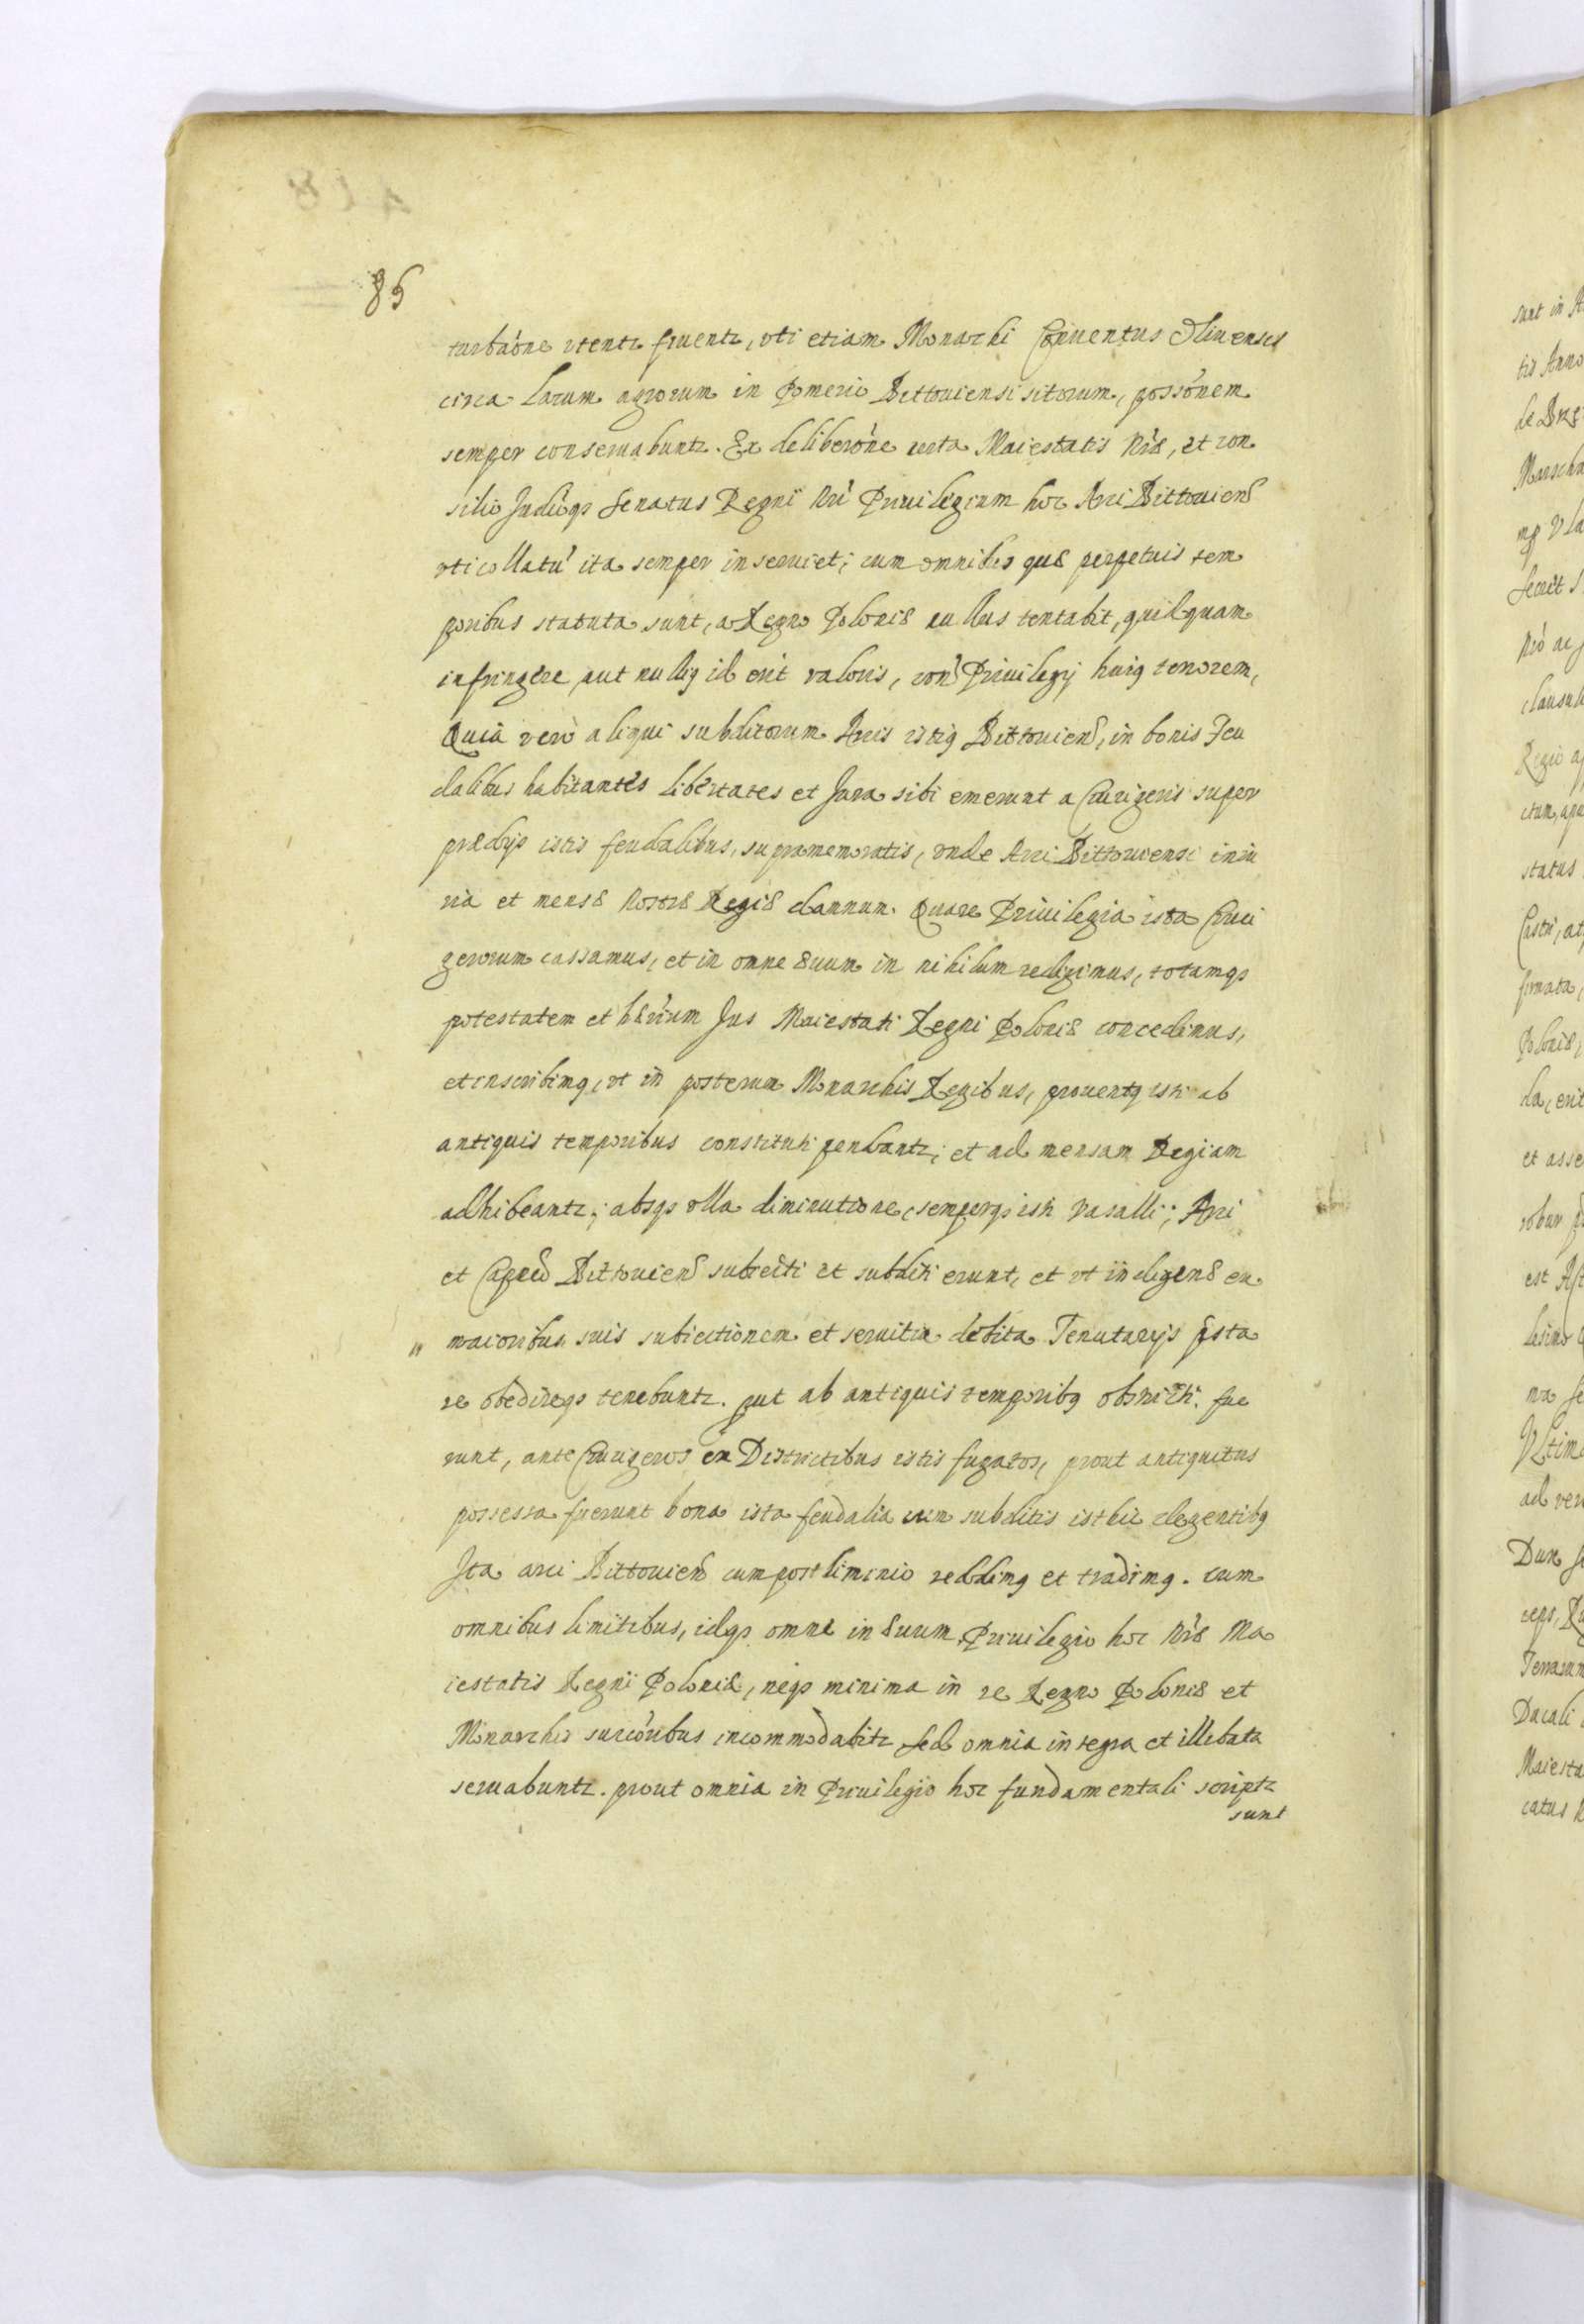 86
turbaóne utentr fruentr, uti etiam Monarchi Conventus Olivensis
circa Lacum agrorum in Pomerio Bittouiensi sitorum, possónem
semper conseruabuntr. Ex deliberóne certa Maiestatis nrae, et con
silio Judicqz Senatus Regni nri Priuilegium hoc Arci Bittouiens
uti collatu ita semper inseruiet; cum omnibus quae perpetuis tem
poribus statuta sunt, a Regno Poloniae nullus tentabit, quidquam
infringere, aut nullius id erit valoris, con Priuilegij huius tenorem,
Quia vero aliqui subditorum Arcis istius Bittouiens, in bonis Feu
dalibus habitantes libertates et Jura sibi emerunt a Crucigeris super
praedijs istis feudalibus, supramemoratis, unde Arci Bittouiensi iniu
ria et mensae nostrae Regiae damnum. Quare Priuilegia ista Cruci
gerorum cassamus, et in omne aeuum in nihilum redigimus, totamqz
potestatem et haerium Jus Maiestati Regni Poloniae concedimus,
et inscribimus, ut in posterum Monarchis Regibus, prouentus isti ab
antiquis temporibus constituti pendantr; et ad mensam Regiam
adhibeantr; absqz ulla diminutione, semperqz isti Vasalli; Arci
et Capeo Bittouiens subiecti et subditi erunt, et ut indigenae ex
" maioribus suis subiectionem et seruitia debita Tenutarijs psta
re obedireqz tenebuntr. put ab antiquis temporibus obstricti fue
runt, ante Crucigeros ex Districtibus istis fugatos, prout antiquitus
possessa fuerunt bona ista feudalia cum subditis isthic degentibus
Ita arci Bittouiens cum postliminio reddimus et tradimus. cum
omnibus limitibus, idqz omne in aeuum Priuilegio hoc nrae Ma
iestatis Regni Poloniae, neqz minima in re Regno Poloniae et
Monarchis succóribus incommodabitr sed omnia integra et illibata
seruabuntr. prout omnia in Priuilegio hoc fundamentali scripta
sunt